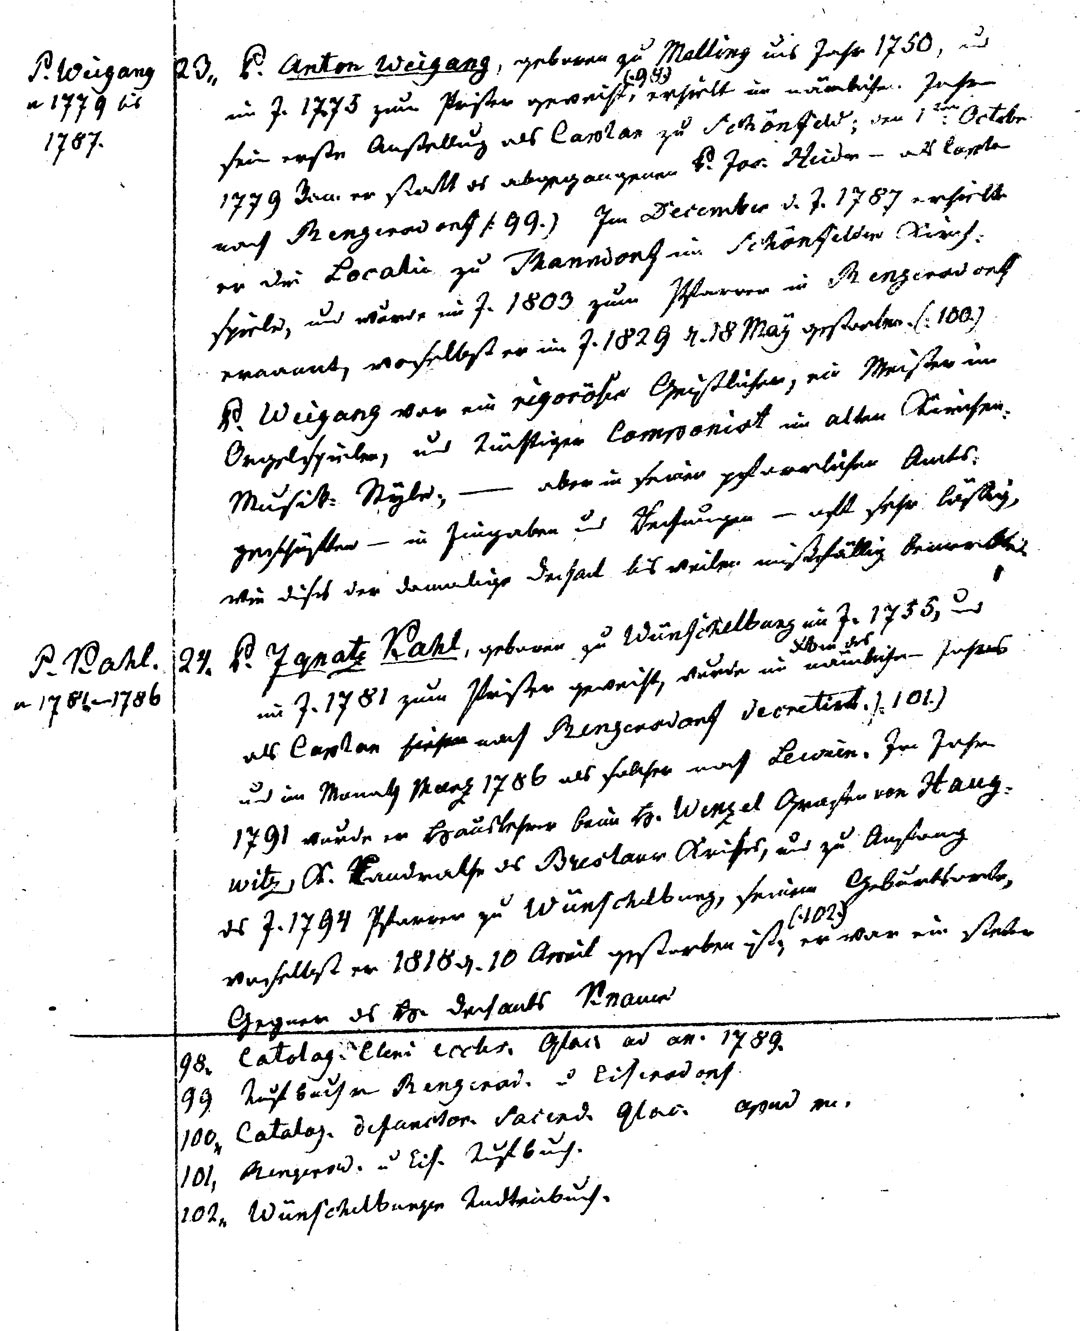 P. Weigang
v 1779 bis
1787.
23., P. Anton Weigang, geboren zu Melling ins Jahr 1750, und
im J. 1775 zum Priester geweiht, (:98:) erhielt im nämlichen Jahre
sein erste Anstellung als Caplan zu Schönfeld; den 1ten Octobr
1779 kam er statt des abgegangenen P. Jos. – als Caplan
nach Rengersdorf (: 99.) Im December d. J. 1787 erhielte
er die Localie zu Thanndorf im Schönfelder Kirch-
spiele, und wurde im J. 1803 zum Pfarrer in Rengersdorf
ernannt, woselbst er im J. 1829 d. 18 May gestorben. (: 100.)
P. Weigang war ein rigoröser Geistlicher, ein Meister im
Orgelspielen, und tüchtiger Componist im alten Kirchen-
Musik-Style; — aber in seinen pfarrlichen Amts-
geschäften — in Eingaben und Rechnungen — oft sehr lässig,
wie dieses der damalige Dechant bisweilen mißfällig bemerkte.
P. Kahl.
v 1781–1786
24. P. Ignatz Kahl, geboren zu Wünschelburg im J. 1755, und
im J. 1781 zum Priester geweiht, wurde im nämlichen Jahres
als Caplan hieher nach Rengersdorf decretirt. (: 101.)
und im Monath Maerz 1786 als solcher nach Lewin. Im Jahre
1791 wurde er Hauslehrer beim H. Wenzel Grafen von Haug-
witz, K. Landrathe des Breslauer Kreises, und zu Anfang
des J. 1794 Pfarrer zu Wünschelburg, seinem Geburtsorte,
woselbst er 1818 d. 10 April gestorben ist; (:102:) er war ein steter
Gegner des H. Dechants Knauer
98. Catolog. Cleri eccles. Glac. ad an. 1789.
99 Taufbuch v Rengersd. u Eisersdorf
100., Catalog. defunctor. Sacerd. Glac. apud me.
101, Rengersd. u Eis. Taufbuch.
102., Wünschelburger Todtenbuch.